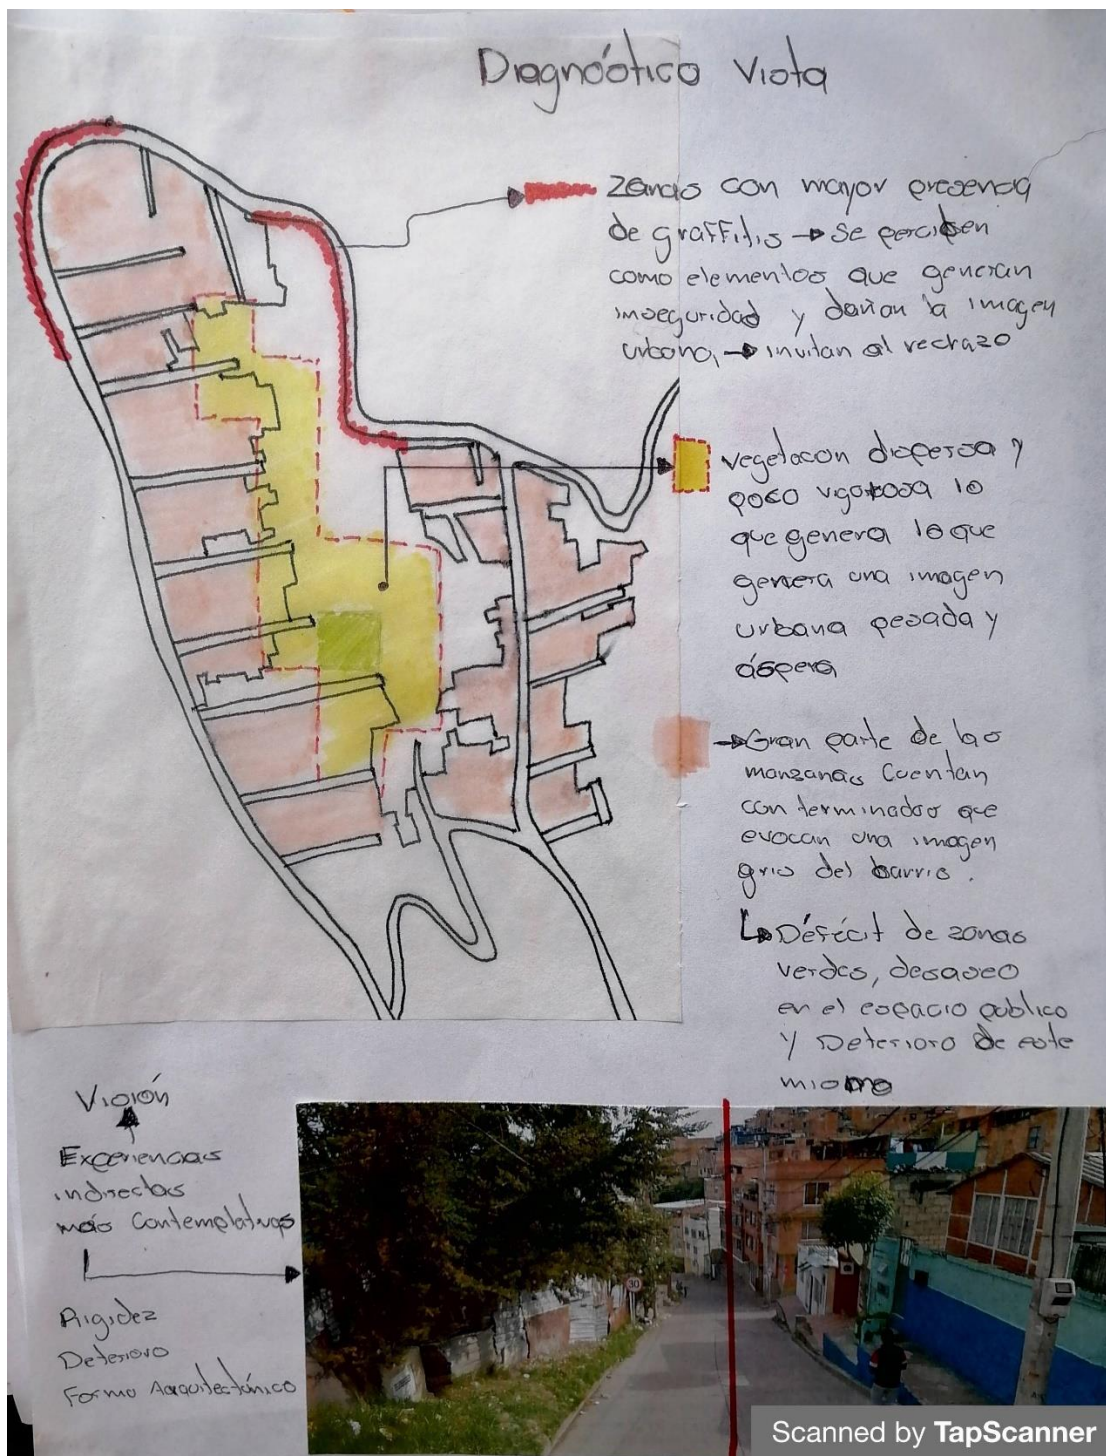 Diagnóstico Vista
Zonas con mayor presencia
de graffitis → se perciben
como elementos que generan
inseguridad y dañan la imagen
urbana, → invitan al rechazo
vegetacon dispersa y
poco vigorosa lo
que genera lo que
genera una imagen
urbana pesada y
áspera
→ Gran parte de las
manzanas cuentan
con terminados que
evocan una imagen
gris del barrio.
↳ Défécit de zonas
verdes, desaseo
en el espacio publico
y Deterioro de este
mismo
Visión
Experiencias
indirectas
más contemplativas
Rigidez
Deterioro
Forma Aarquitectónico
30
Scanned by TapScanner